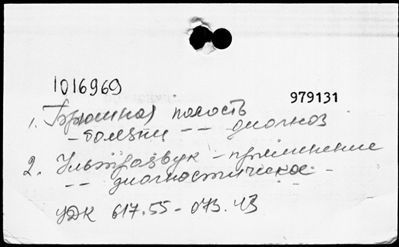 1016969
979131
1. Брюшная полость
- болезни -- диагноз
2. Ультразвук - применение
-- диагностическое -
УДК 617.55-073.43